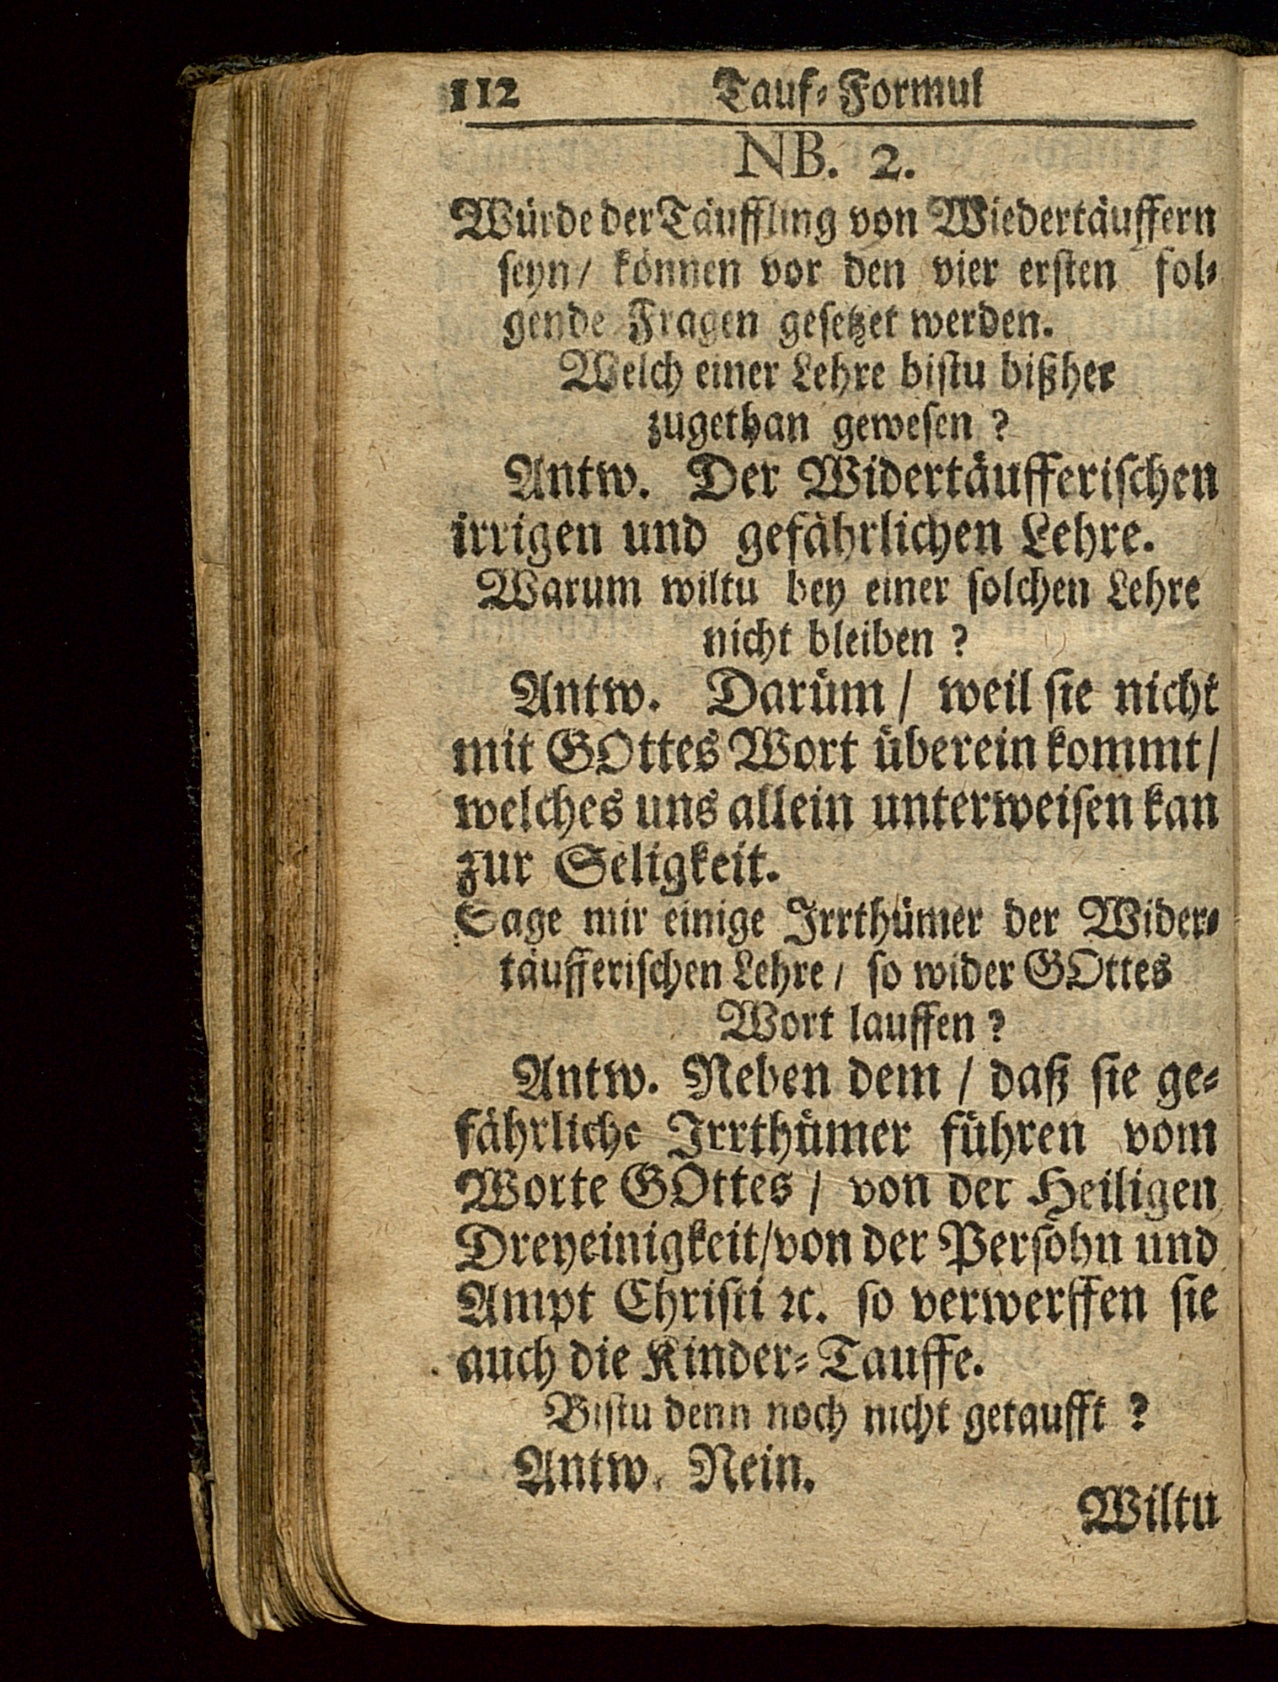 112 Tauf-Formul
NB. 2.
Würde der Täuffling von Wiedertäuffern
seyn/ können vor den vier ersten fol-
gende Fragen gesetzet werden.
Welch einer Lehre bistu bißher
zugethan gewesen ?
Antw. Der Widertäufferischen
irrigen und gefährlichen Lehre.
Warum wiltu bey einer solchen Lehre
nicht bleiben ?
Antw. Darüm / weil sie nicht
mit GOttes Wort überein kommt/
welches uns allein unterweisen kan
zur Seligkeit.
Sage mir einige Irrthümer der Wider-
täufferischen Lehre / so wider GOttes
Wort lauffen ?
Antw. Neben dem / daß sie ge-
fährliche Irrthümer führen vom
Worte GOttes / von der Heiligen
Dreyeinigkeit/von der Persohn und
Ampt Christi ꝛc. so verwerffen sie
auch die Kinder-Tauffe.
Bistu denn noch nicht getaufft ?
Antw. Nein.
Wiltu